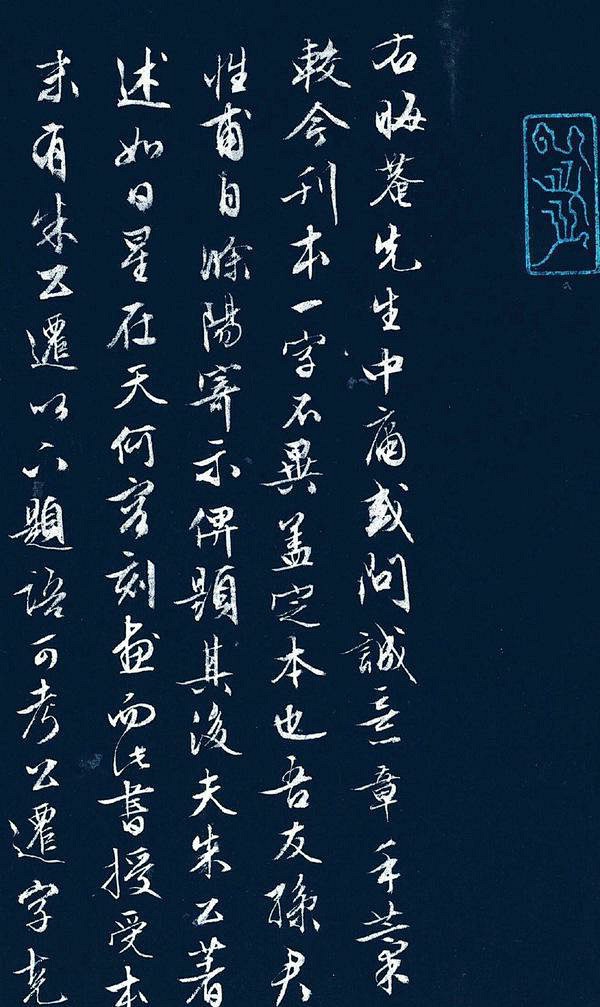 右晦菴先生中庸或問誠意章手藁
較今刊本一字不異盖定本也吾友孫君
性甫自滁陽寄示俾題其後夫朱公著
述如日星在天何容刻畫而此書授受本
末有朱公遷以下題語可考公遷字克